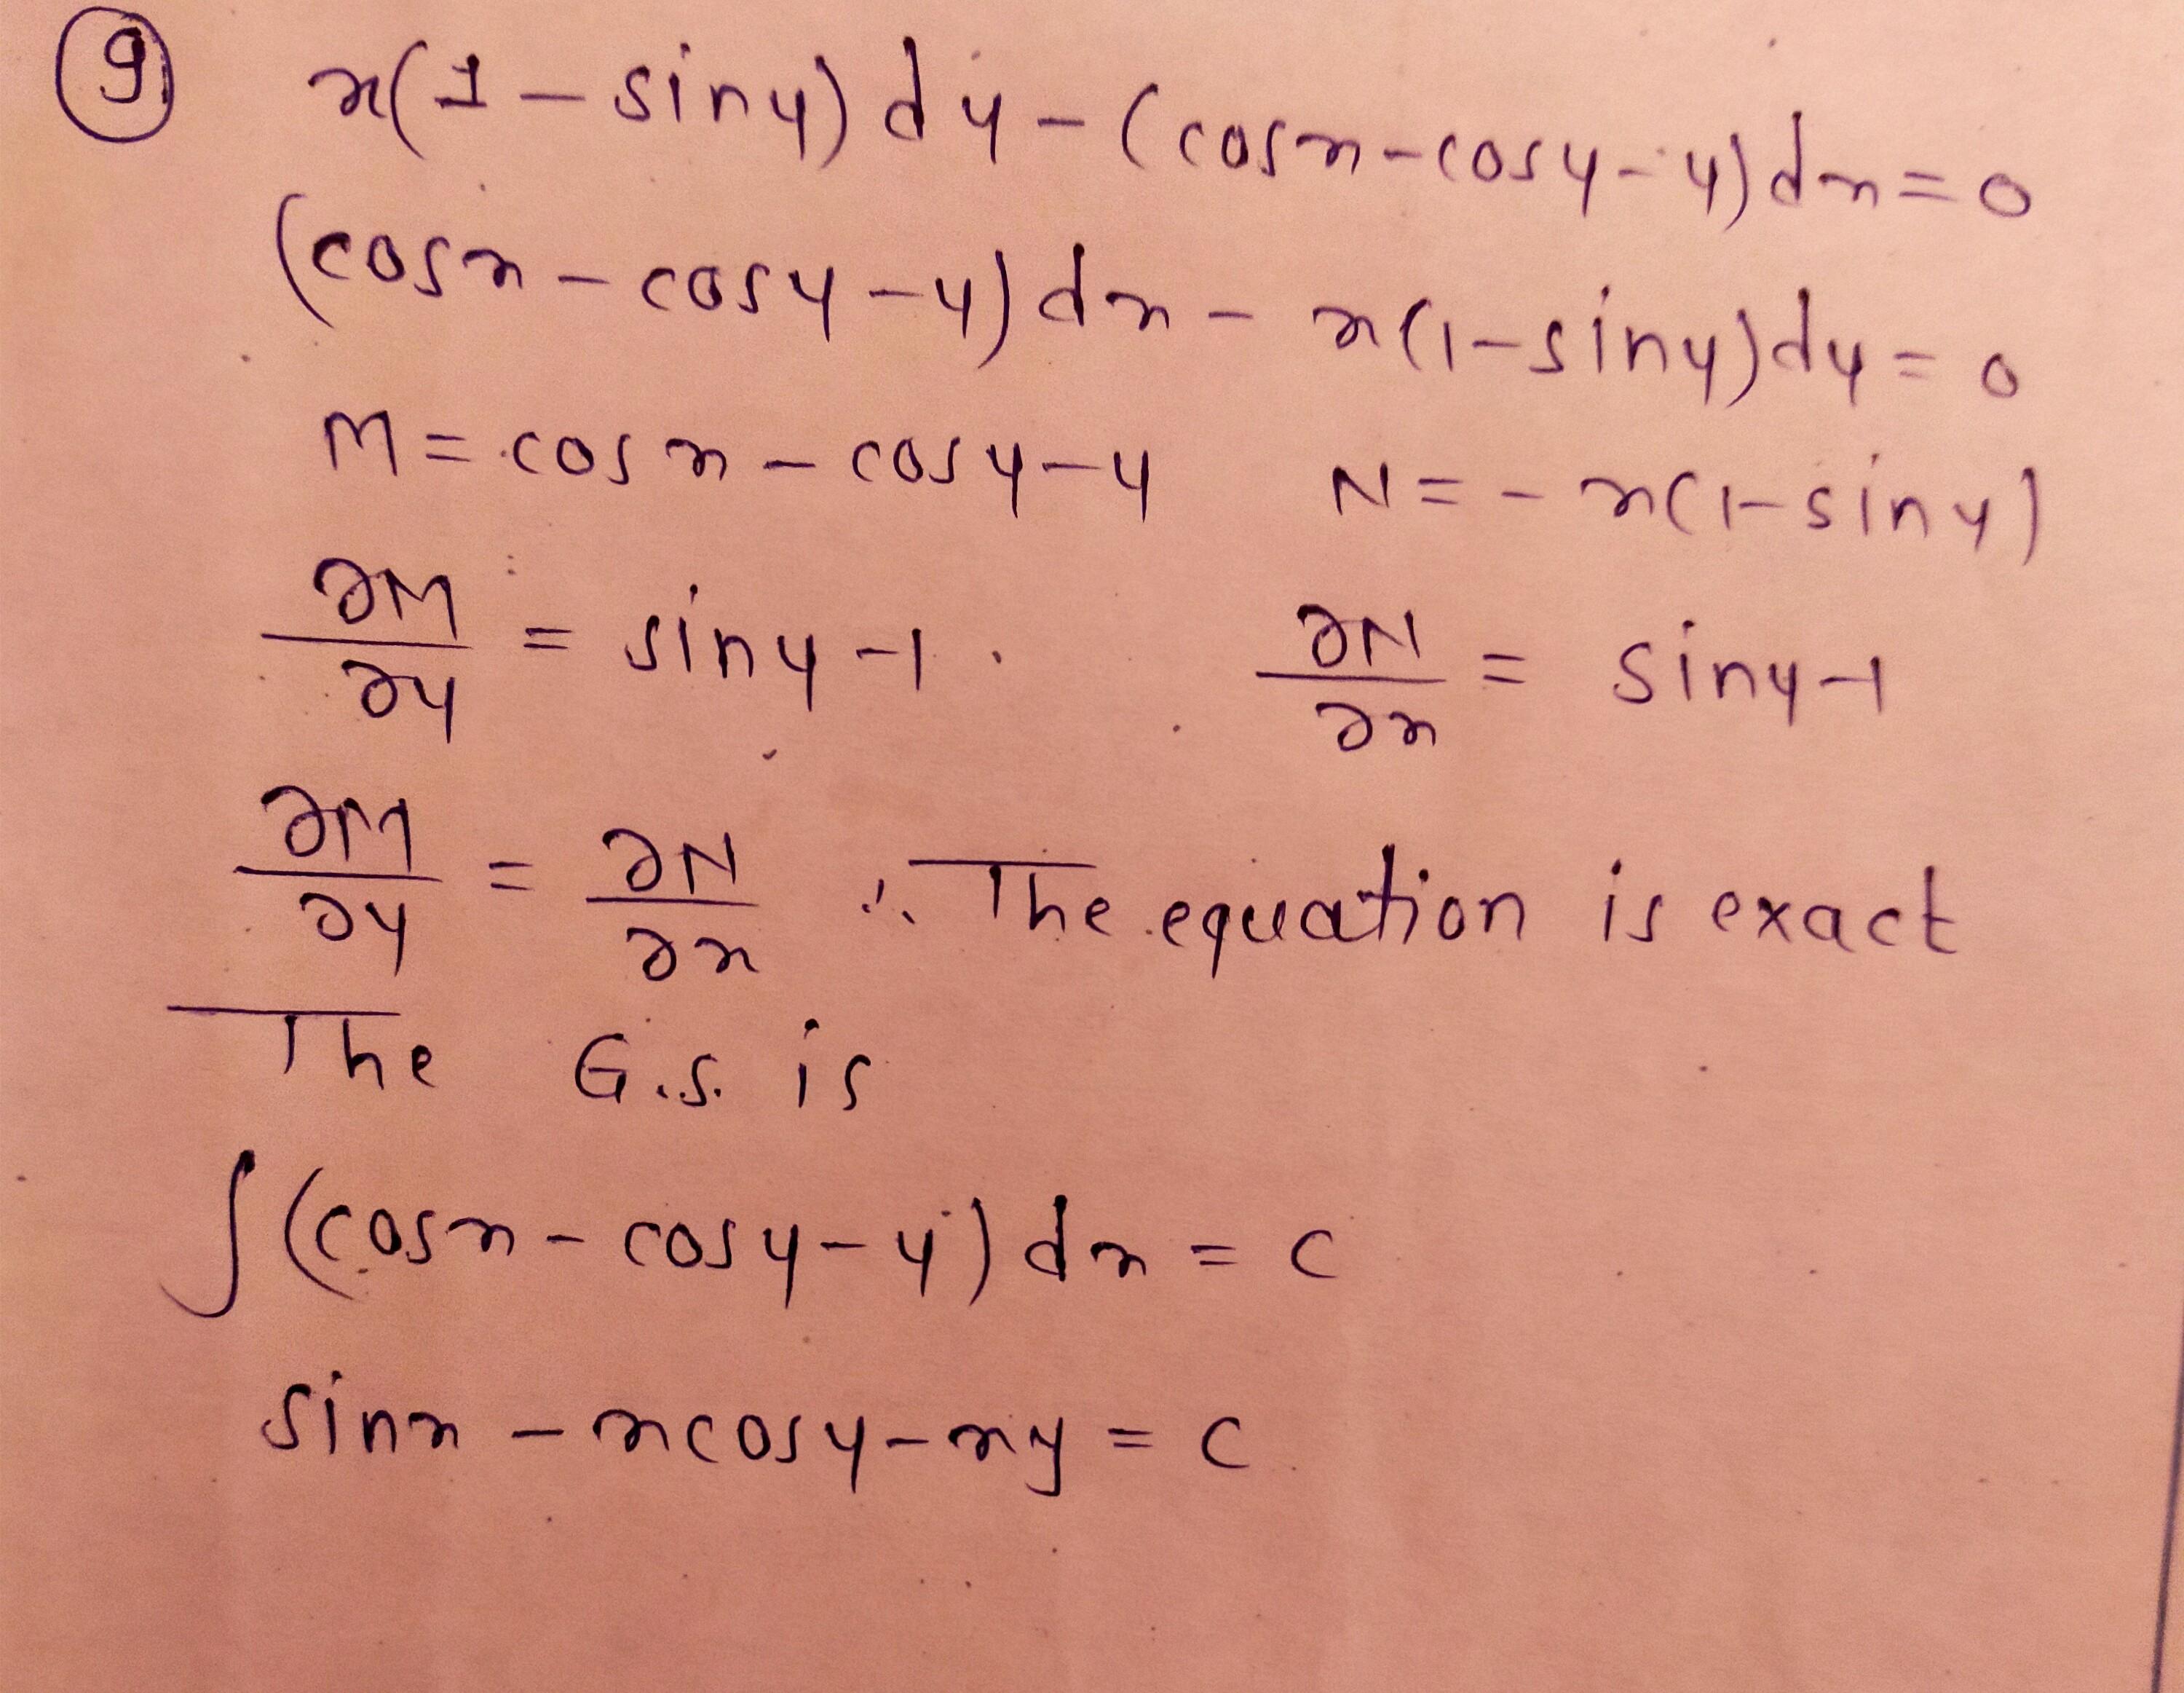 9 x(1-siny)dy-(cosx-cosy-y)dx=0
(cosx-cosy-y)dx-x(1-siny)dy=0
M=cosx-cosy-y N=-x(1-siny)
∂M/∂y = siny-1. ∂N/∂x = siny-1
∂M/∂y = ∂N/∂x ∴ The equation is exact
The G.S. is
∫(cosx-cosy-y)dx=c
sinx-xcosy-xy=c